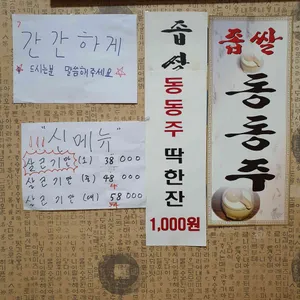 간간하게
드시는분 말씀해주세요
"신메뉴"
(소) 38 000
(중) 48 000
(대) 58 000
동동주 딱한잔
1,000원
찹쌀
동동주